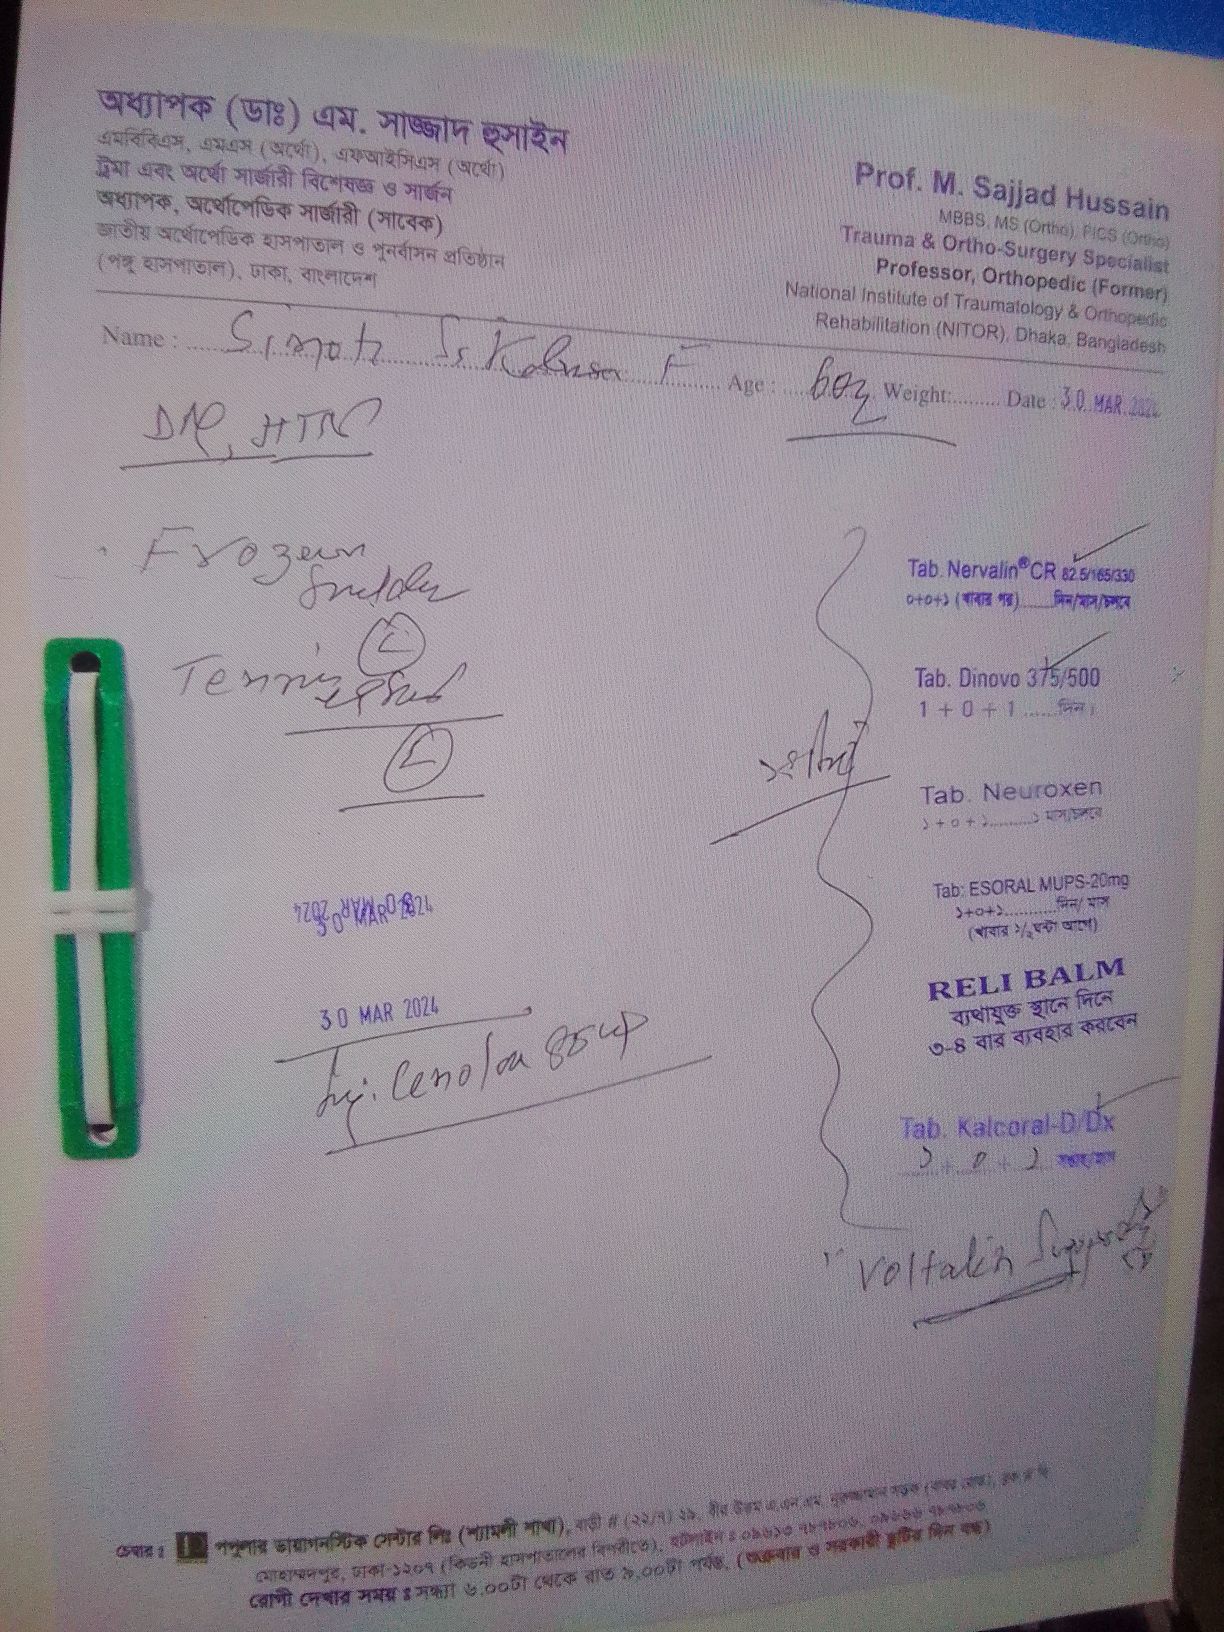 অধ্যাপক (ডাঃ) এম. সাজ্জাদ হুসাইন
এমবিবিএস, এমএস (অর্থো), এফআইসিএস (অর্থো)
ট্রমা এবং অর্থো সার্জারী বিশেষজ্ঞ ও সার্জন
অধ্যাপক, অর্থোপেডিক সার্জারী (সাবেক)
জাতীয় অর্থোপেডিক হাসপাতাল ও পূনর্বাসন প্রতিষ্ঠান
(পঙ্গু হাসপাতাল), ঢাকা, বাংলাদেশ
Prof. M. Sajjad Hussain
MBBS, MS (Ortho), FICS (Ortho)
Trauma & Ortho-Surgery Specialist
Professor, Orthopedic (Former)
National Institute of Traumatology & Orthopedic
Rehabilitation (NITOR), Dhaka, Bangladesh
Name : Age : 60y Weight: Date : 30 MAR 2024
HTN
Frozen
Tennis
L
L
30 MAR 2024
30 MAR 2024
30 MAR 2024
Inj.
Tab. Nervalin®CR 82.5/165/330
০+০+১ (খাবার পর) দিন/মাস/চলবে
Tab. Dinovo 375/500
1 + 0 + 1 ......দিন।
Tab. Neuroxen
১+০+১..........১ মাস/চলবে
Tab: ESORAL MUPS-20mg
১+০+১............দিন/ মাস
(খাবার ১/২ ঘন্টা আগে)
RELI BALM
ব্যথাযুক্ত স্থানে দিনে
৩-৪ বার ব্যবহার করবেন
Tab. Kalcoral-D/Dx
১ + ০ + ১
Voltalin
চেম্বার : পপুলার ডায়াগনস্টিক সেন্টার লিঃ (শ্যামলী শাখা), বাড়ী # (২২/৭)
মোহাম্মদপুর, ঢাকা-১২০৭ (কিডনী হাসপাতালের বিপরীতে),
রোগী দেখার সময় : সন্ধ্যা ৬.০০টা থেকে রাত ৯.০০টা পর্যন্ত, (শুক্রবার ও সরকারী ছুটির দিন বন্ধ)